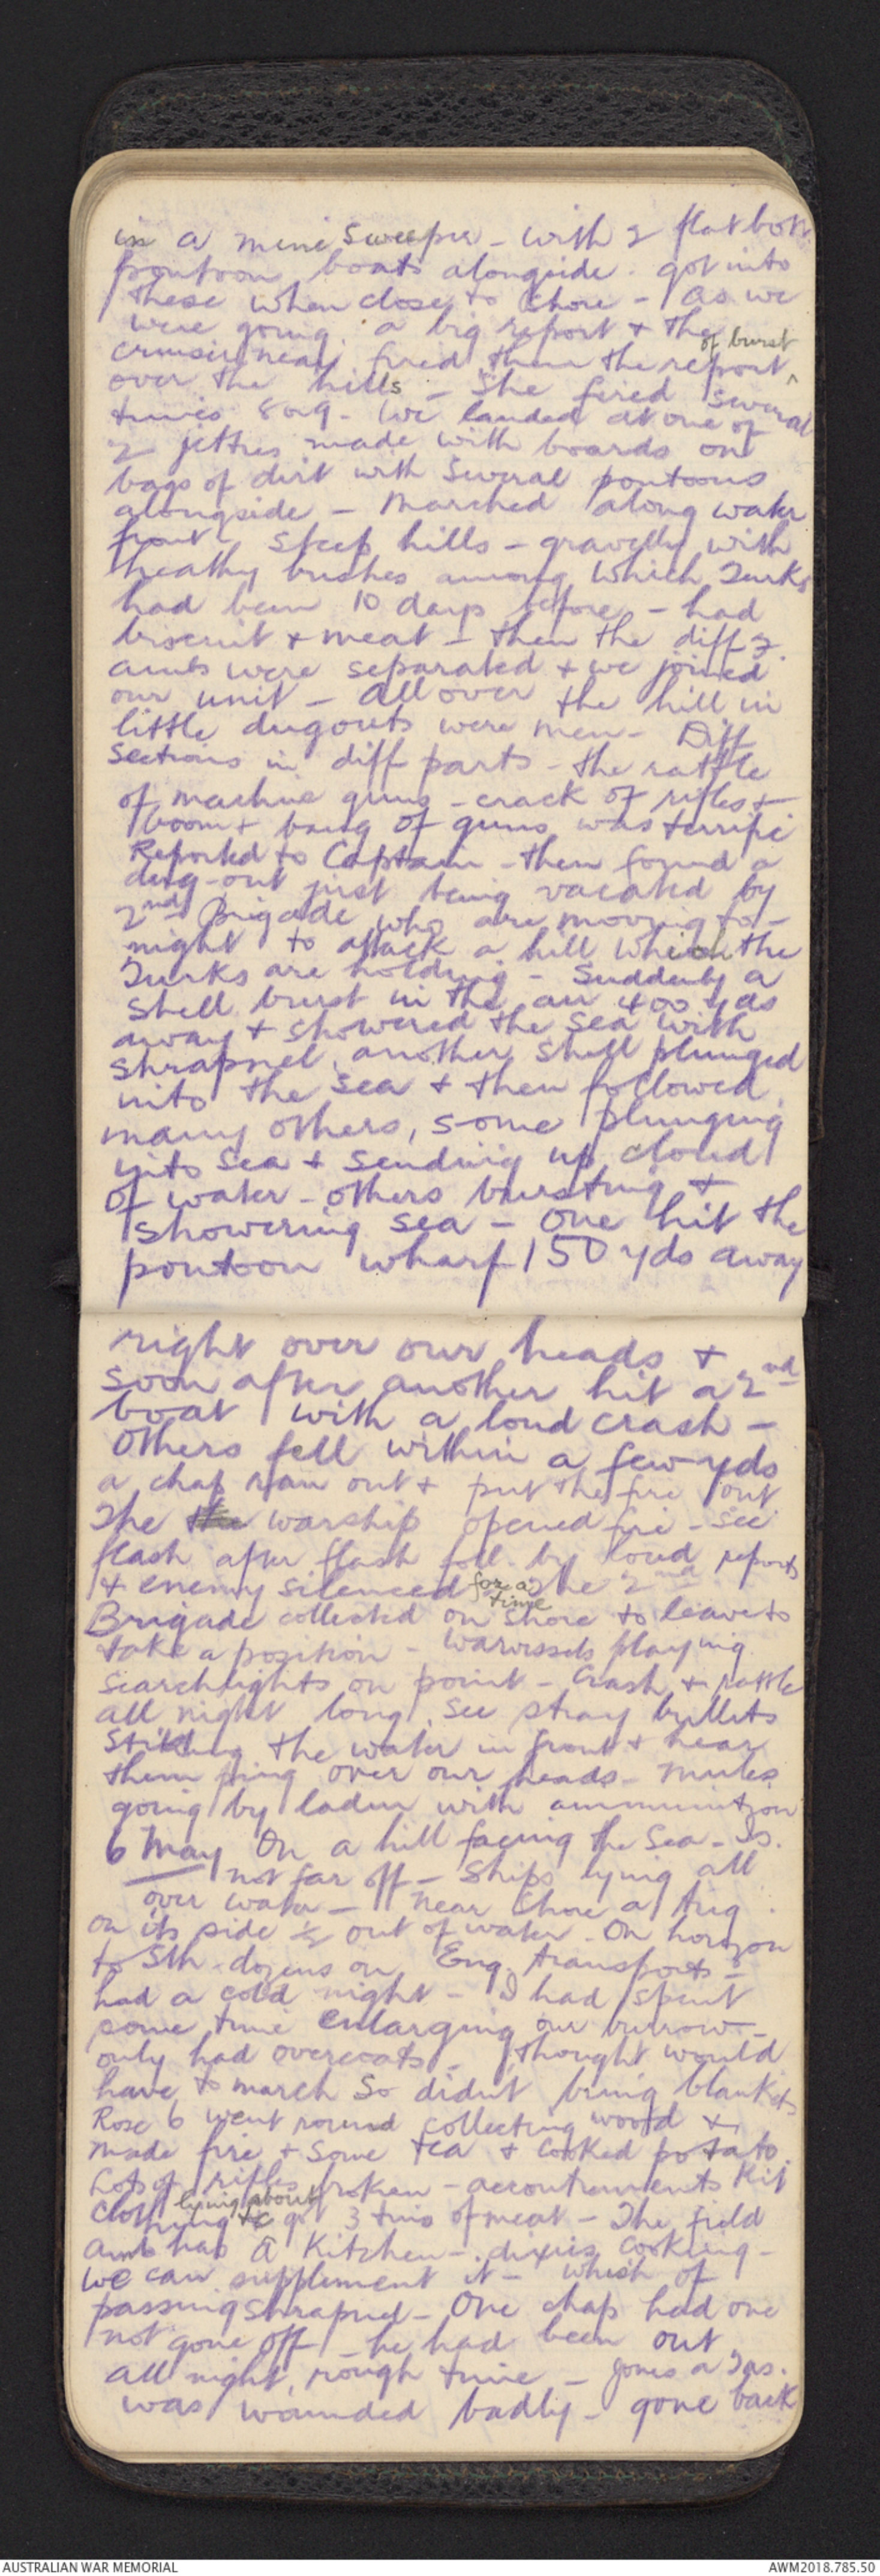 in a mine sweeper - with 2 flat bott
pontoon boats alongside. got into
these when close to shore - as we
were going. a big report & the
cruiser near fired then the report ^ of burst
over the hills - She fired several
times 8 or 9. We landed at one of
2 jetties made with boards on
bags of dirt with several pontoons
alongside - Marched along water
front, steep hills - gravelly with
heathy bushes among which Turks
had been 10 days before - had
biscuit & meat - then the diff
ambs were separated & we joined
our unit - all over the hill in
little dugouts were men - Diff
sections in diff parts - the rattle
of machine guns - crack of rifles &
boom & bang of guns was terrific
Reported to Captain - then found a
dug-out just being vacated by
2nd Brigade who are moving to-
night to attack a hill which the
Turks are holding - Suddenly a
shell burst in the air 400 yds
away & showered the sea with
shrapnel, another shell plunged
into the sea & then followed
many others, some plunging
into sea & sending up cloud
of water - others bursting &
showering sea - One hit the
pontoon wharf 150 yds away
right over our heads &
soon after another hit a 2nd
boat with a loud crash -
Others fell within a few yds
a chap ran out & put the fire out
The warship opened fire - see
flash after flash foll. by loud reports
& enemy silenced for a time The 2nd
Brigade collected on shore to leave to
take a position - Warvessels playing
searchlights on point - Crash & rattle
all night long. See stray bullets
striking the water in front & hear
them ping over our heads - mules
going by laden with ammunition
6 May On a hill facing the Sea - Is.
not far off - Ships lying all
over water - Near shore a tug
on its side ½ out of water. On horizon
to Sth - dozens on Eng. transports -
had a cold night - I had spent
some time enlarging our burrow -
only had overcoats - thought would
have to march so didnt bring blankets
Rose 6 went round collecting wood &
made fire & some tea & cooked potato.
Lots of rifles broken - accoutrements kit
clothing &c lying about got 3 tins of meat - The field
amb has a Kitchen - dixies cooking -
we can supplement it - which of
passing shrapnel - One chap had one
not gone off - he had been out
all night, rough time - Jones a Tas.
was wounded badly - gone back
AUSTRALIAN WAR MEMORIAL
AWM2018.785.50